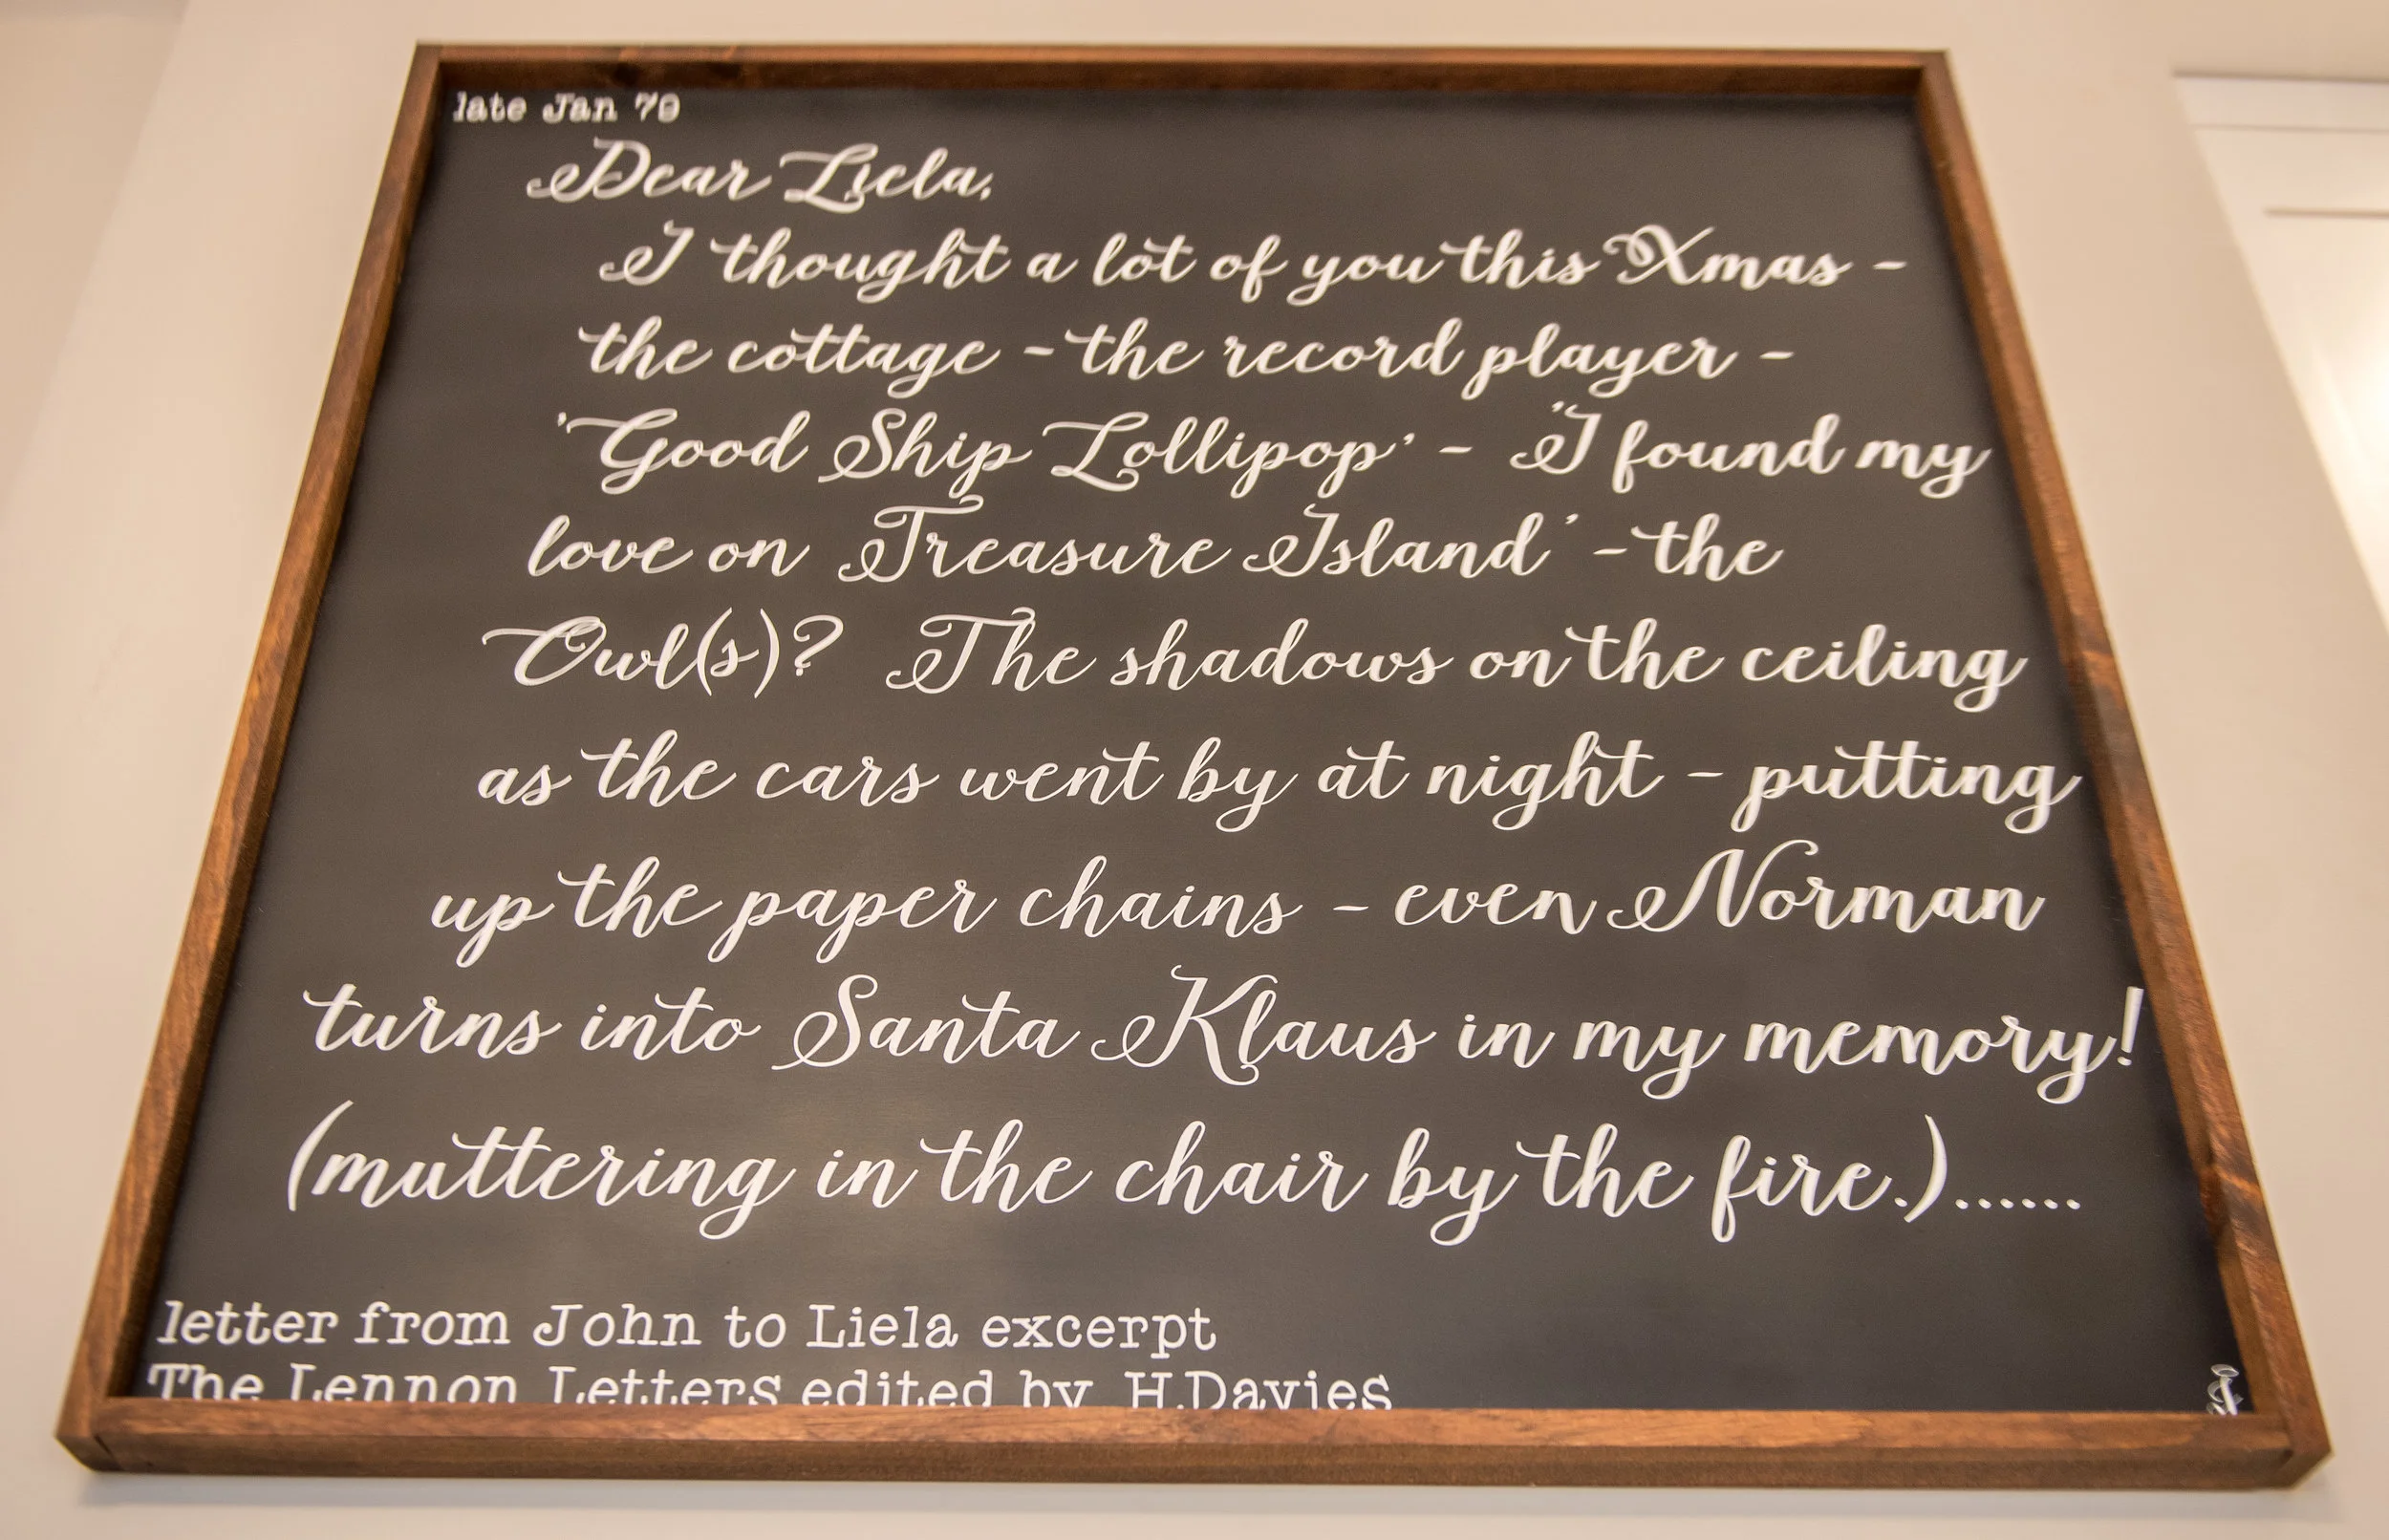 late Jan 79
Dear Liela,
I thought a lot of you this Xmas -
the cottage - the record player -
'Good Ship Lollipop' - 'I found my
love on Treasure Island' - the
Owl(s)? The shadows on the ceiling
as the cars went by at night - putting
up the paper chains - even Norman
turns into Santa Klaus in my memory!
(muttering in the chair by the fire.)......
letter from John to Liela excerpt
The Lennon Letters edited by H.Davies